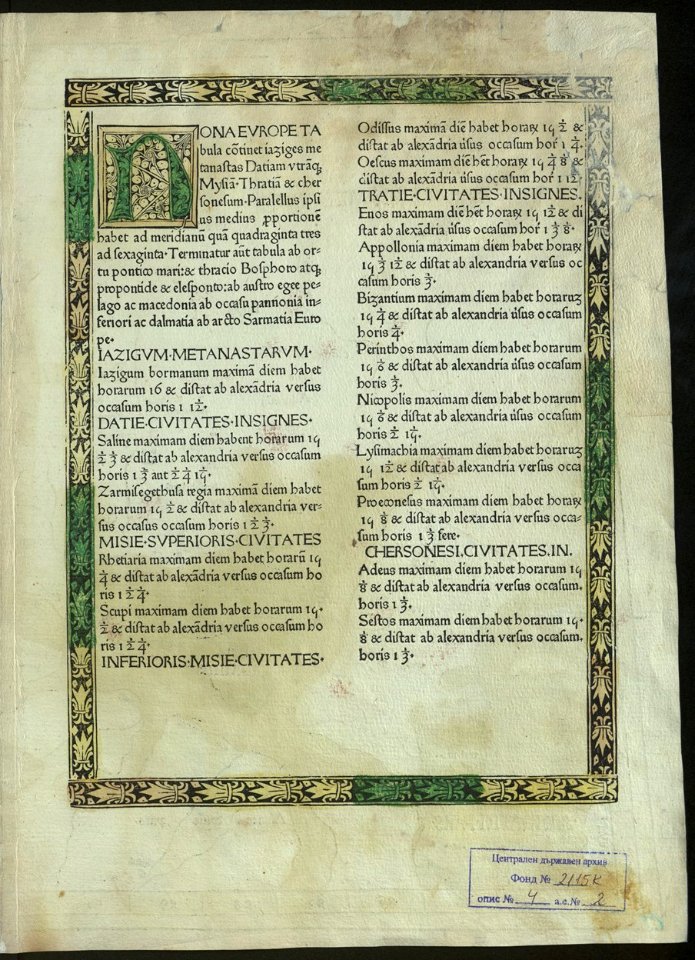 NONA EVROPE TA
bula cõtinet iaziges me
tanastas Datiam vtrãq;
Mysiã· Thratiã & cher
sonesum· Paralellus ipsi
us medius ꝓportionẽ
habet ad meridianũ quã quadraginta tres
ad sexaginta· Terminatur aũt tabula ab or-
tu pontico mari: & thracio Bosphoro atq;
propontide & elesponto: ab austro egee pe-
lago ac macedonia ab occasu pannonia in-
feriori ac dalmatia ab arcto Sarmatia Euro
pe·
IAZIGVM·METANASTARVM·
Iazigum bormanum maximã diem habet
horarum 16 & distat ab alexãdria versus
occasum horis 1 1/12·
DATIE·CIVITATES·INSIGNES·
Saline maximam diem habent horarum 15
1/2 1/3 & distat ab alexandria versus occasum
horis 1 1/3 aut 1/2 1/4 1/15·
Zarmisegethusa regia maximã diem habet
horarum 15 1/2 & distat ab alexandria ver-
sus occasus occasum horis 1 1/2 1/3·
MISIE·SVPERIORIS·CIVITATES
Rhetiaria maximam diem habet horarũ 15
1/4 & distat ab alexãdria versus occasum ho
ris 1 1/2 1/4·
Scupi maximam diem habet horarum 15·
1/2 & distat ab alexãdria versus occasum ho
ris 1 1/2 1/4·
INFERIORIS·MISIE·CIVITATES·
Odissus maximã diẽ habet horaꝝ 15 1/2 &
distat ab alexãdria ũsus occasum hor̃ 1 1/4·
Oescus maximam diẽ hẽt horaꝝ 15 1/4 1/8 &
distat ab alexãdria ũsus occasum hor̃ 1 1/12·
TRATIE·CIVITATES·INSIGNES·
Enos maximam diẽ hẽt horaꝝ 15 1/12 & di
stat ab alexãdria ũsus occasum hor̃ 1 1/3 1/8·
Appollonia maximam diem habet horaꝝ
15 1/3 1/12 & distat ab alexandria versus oc
casum horis 1/3·
Bizantium maximam diem habet horaruꝫ
15 1/4 & distat ab alexandria ũsus occasum
horis 1/4·
Perinthos maximam diem habet horarum
15 1/6 & distat ab alexandria ũsus occasum
horis 1/3·
Nicopolis maximam diem habet horarum
15 1/6 & distat ab alexandria ũsus occasum
horis 1/2 1/15·
Lysimachia maximam diem habet horaruꝫ
15 1/12 & distat ab alexandria versus occa
sum horis 1/2 1/15·
Proeconesus maximam diem habet horaꝝ
15 1/8 & distat ab alexandria versus occa-
sum horis 1 1/3 fere·
CHERSONESI.CIVITATES.IN.
Adeus maximam diem habet horarum 15
1/8 & distat ab alexandria versus occasum.
horis 1 1/3·
Sestos maximam diem habet horarum 15·
1/8 & distat ab alexandria versus occasum.
horis 1 1/3·
Централен държавен архив
Фонд № 2115К
опис № 4 а.е.№ 2